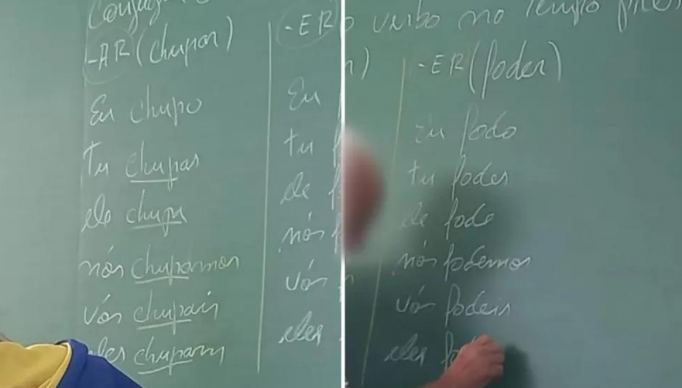 Conjugar
-AR (chupar)
Eu chupo
tu chupas
ele chupa
nós chupamos
vós chupais
eles chupam
-ER
Eu
tu
ele
nós
vós
eles
o verbo no tempo
-ER (foder)
Eu fodo
tu fodes
ele fode
nós fodemos
vós fodeis
eles fo